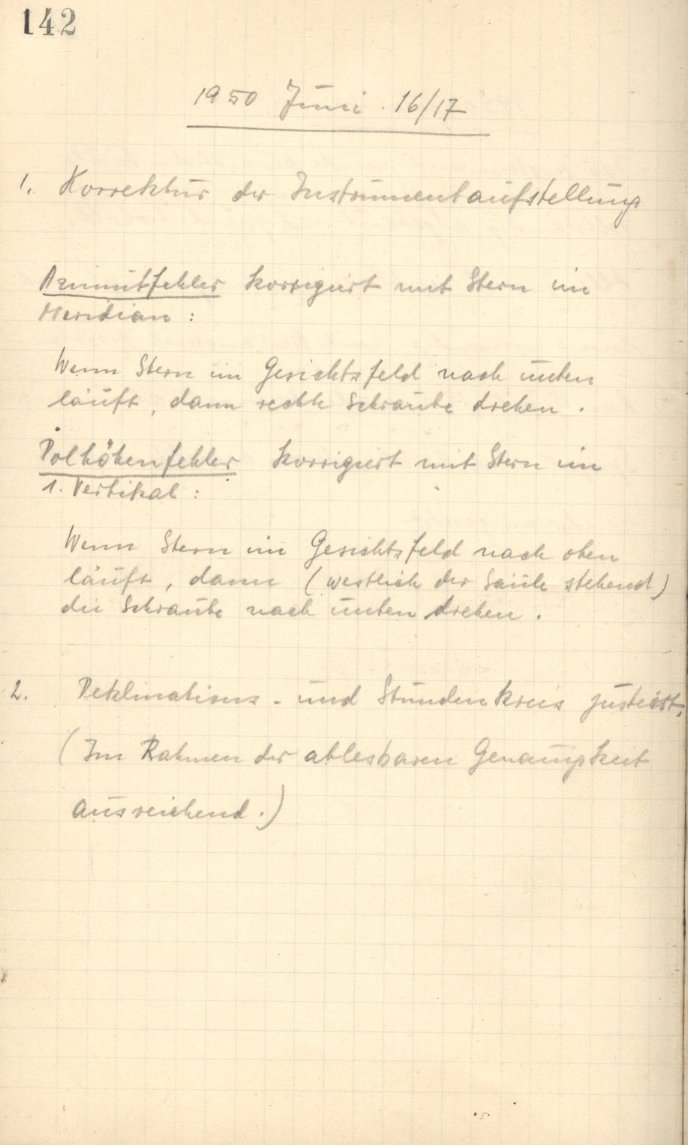 142
1950 Juni. 16/17
1. Korrektur der Instrumentaufstellung
Azimutfehler korrigiert mit Stern im
Meridian :
Wenn Stern im Gesichtsfeld nach unten
läuft, dann rechte Schraube drehen.
Polhöhenfehler korrigiert mit Stern im
1. Vertikal :
Wenn Stern im Gesichtsfeld nach oben
läuft, dann (westlich der Säule stehend)
die Schraube nach unten drehen.
2. Deklinations- und Stundenkreis justiert.
(Im Rahmen der ablesbaren Genauigkeit
ausreichend.)